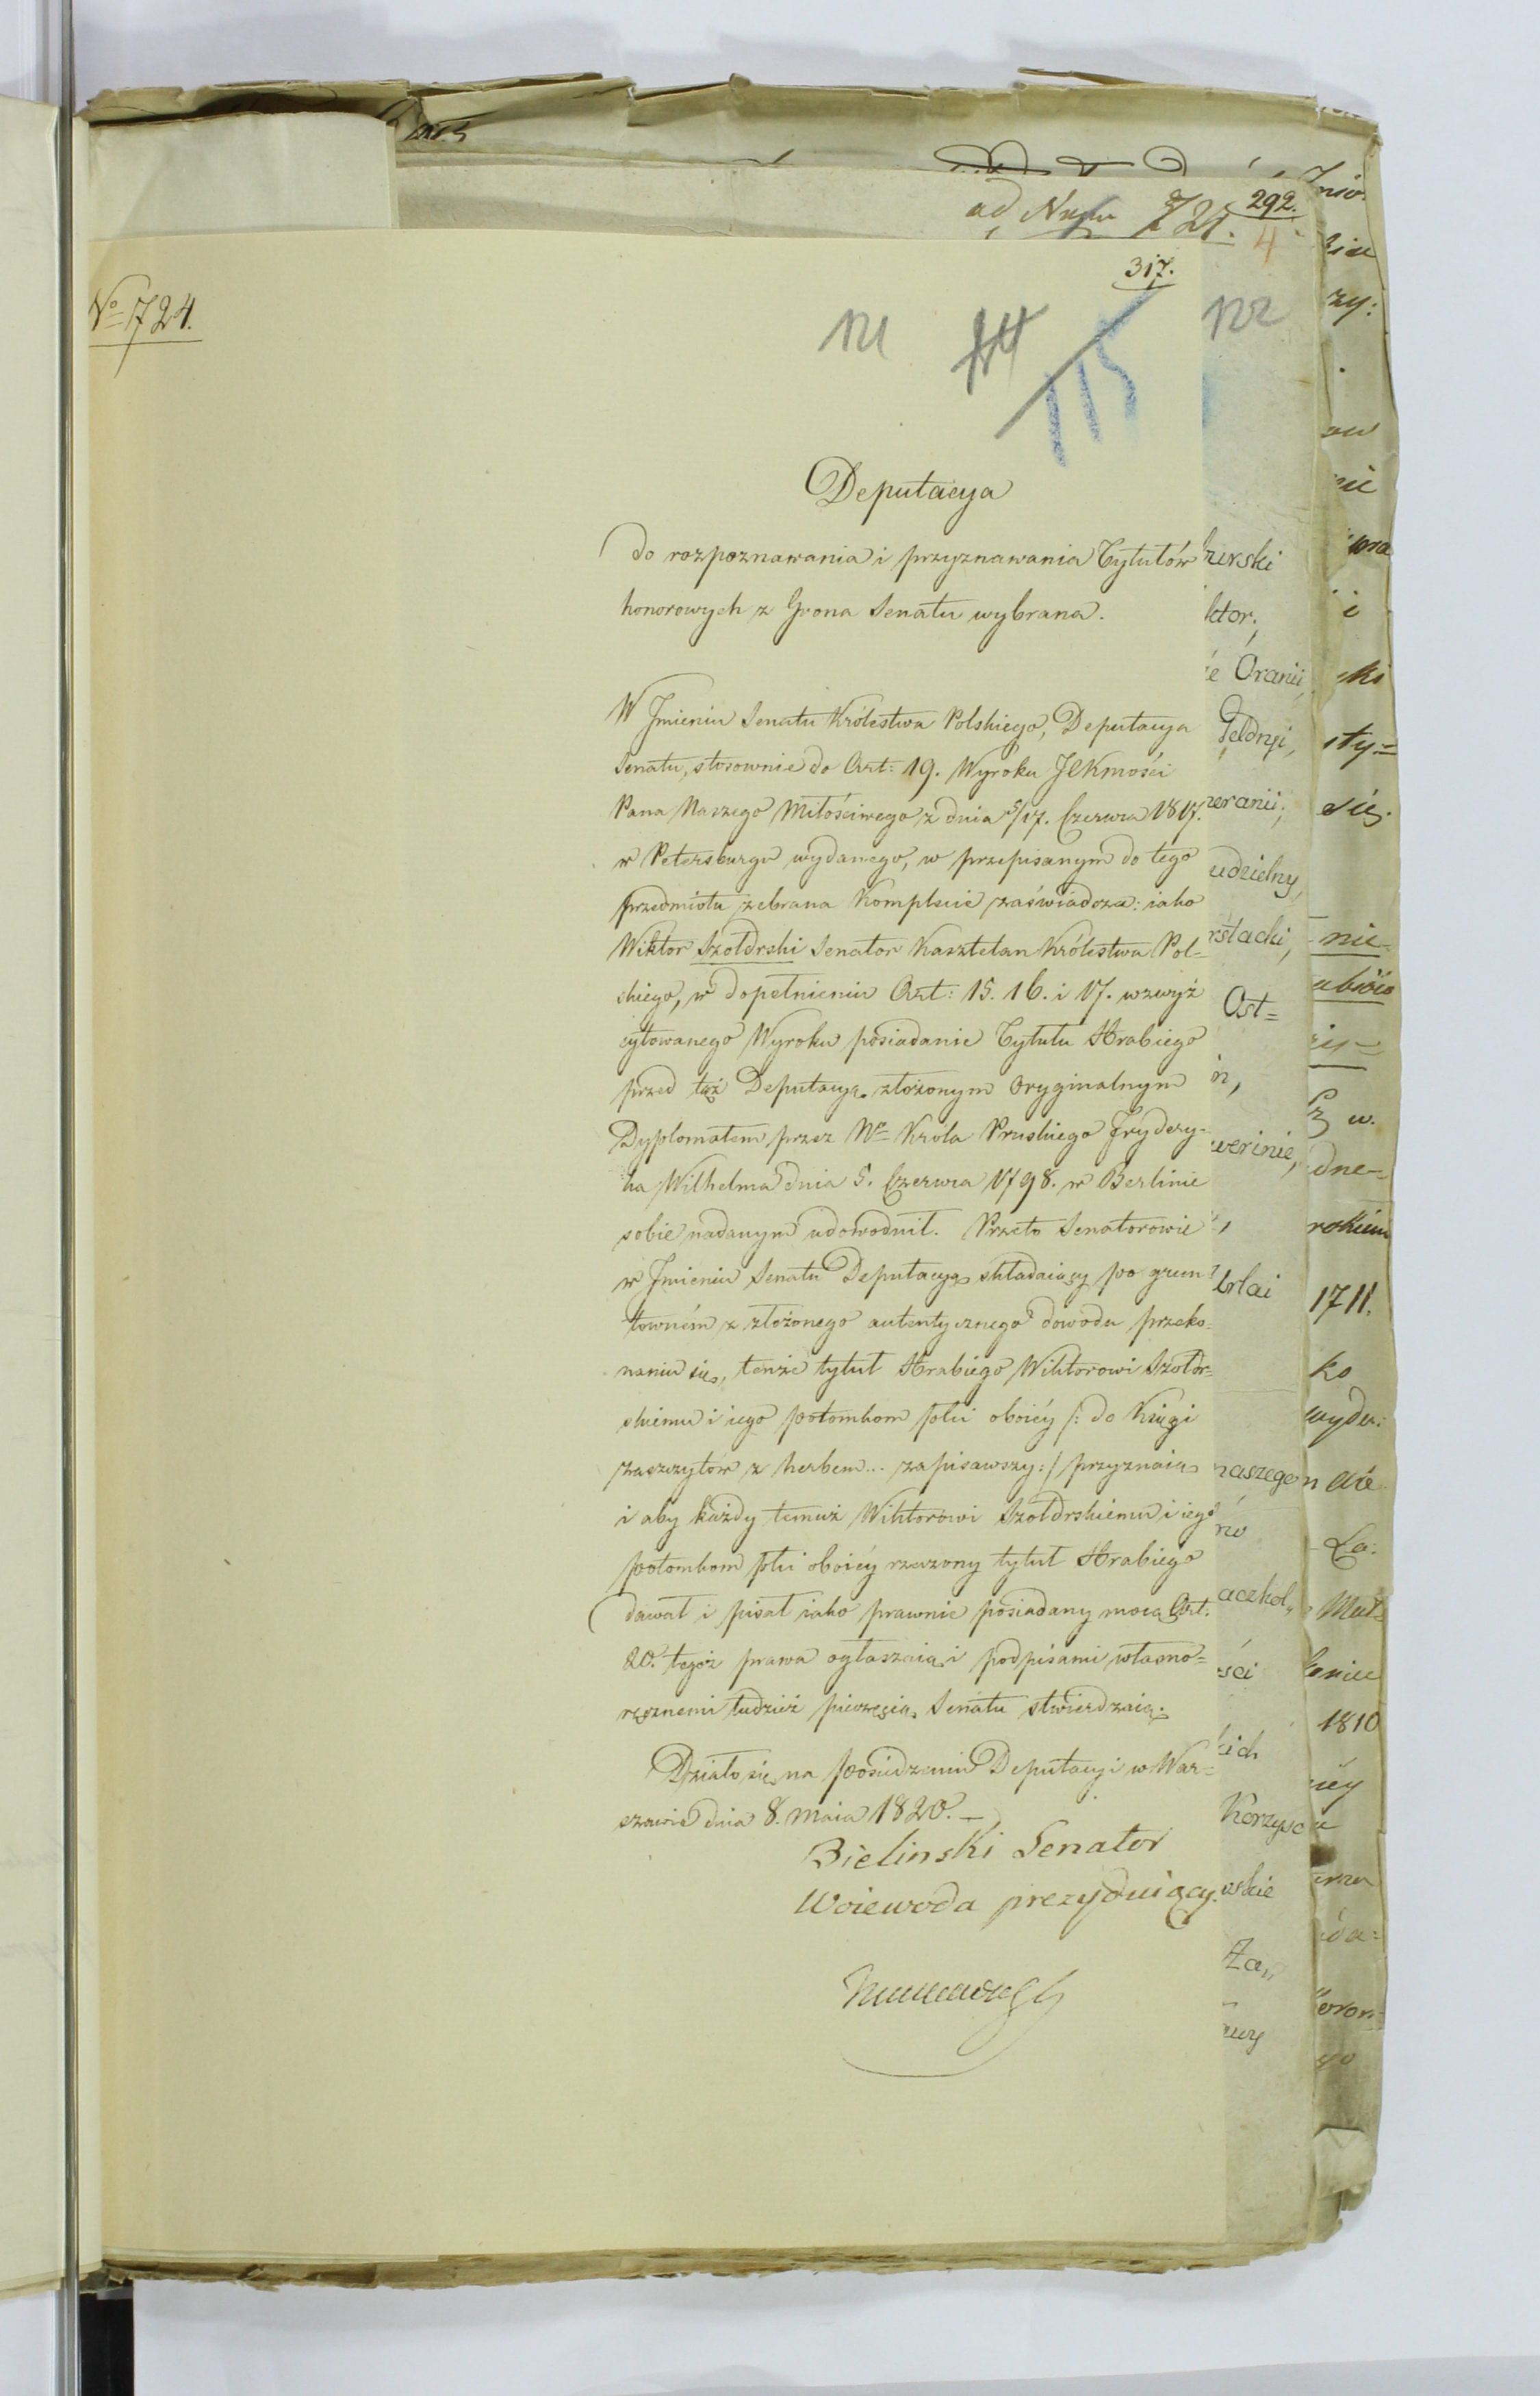 ad Num 721. 292.
4
No 724.
317.
115
Deputacya
do rozpoznawania i przyznawania Tytułów
honorowych z Grona Senatu wybrana.
W Jmieniu Senatu Królestwa Polskiego, Deputacya
Senatu, stosownie do Art: 19. Wyroku JKMości
Pana Naszego Miłościwego z dnia 5/17. Czerwca 1817.
w Petersburgu wydanego, w przepisanym do tego
przedmiotu zebrana Komplecie zaświadcza: iako
Wiktor Szołdrski Senator Kasztelan Królestwa Pol=
skiego, w dopełnieniu Art: 15. 16. i 17. wzwyż
cytowanego Wyroku posiadanie Tytułu Hrabiego
przed tąż Deputacyą złożonym Oryginalnym
Dyplomatem przez Króla Pruskiego Frydery=
ka Wilhelma dnia 5. Czerwca 1798. w Berlinie
sobie nadanym udowodnił. Przeto Senatorowie
w Jmieniu Senatu Deputacyą składaiący po grun
towném z złożonego autentycznego dowodu przeko=
naniu się, tenże tytuł Hrabiego Wiktorowi Szołdr=
skiemu i iego potomkom płci oboiéy /: do Księgi
zaszczytów z herbem... zapisawszy :/ przyznaią
i aby każdy temuż Wiktorowi Szołdrskiemu i iego
potomkom płci oboiéy rzeczony tytuł Hrabiego
dawał i pisał iako prawnie posiadany mocą Art.
20. tegoż prawa ogłaszaią i podpisami własno=
ręcznemi tudzież pieczęcią Senatu stwierdzaią.
Działo się na posiedzeniu Deputacyi w War=
szawie dnia 8. Maia 1820. —
Bielinski Senator
Woiewoda prezyduiący.
rzerski
ktor,
Oranii,
Geldryi,
udzielny,
Ost=
werinie,
naszego
aczkol„
ści
kich
Korzysc
1711.
ko
wydu:
1810